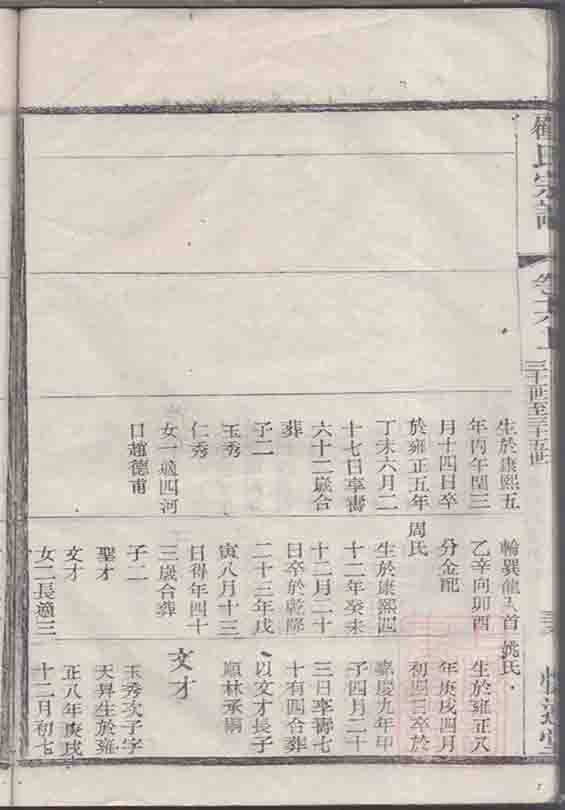 氏宗譜
生於康熙五
年丙午閏三
月十四日卒
於雍正五年
丁未六月二
十七日享壽
六十二歲合
葬
子二
玉秀
仁秀
女一適四河
口趙德甫
輪巽龍入首
乙辛向卯酉
分金配
周氏
生於康熙四
十二年癸未
十二月二十
日卒於乾隆
二十三年戊
寅八月十三
日得年四十
三歲合葬
子二
聖才
文才
女二長適三
姚氏
生於雍正八
年庚戌四月
初四日卒於
嘉慶九年甲
子四月二十
三日享壽七
十有四合葬
以文才長子
順林承嗣
文才
玉秀次子字
天昇生於雍
正八年庚戌
十二月初七